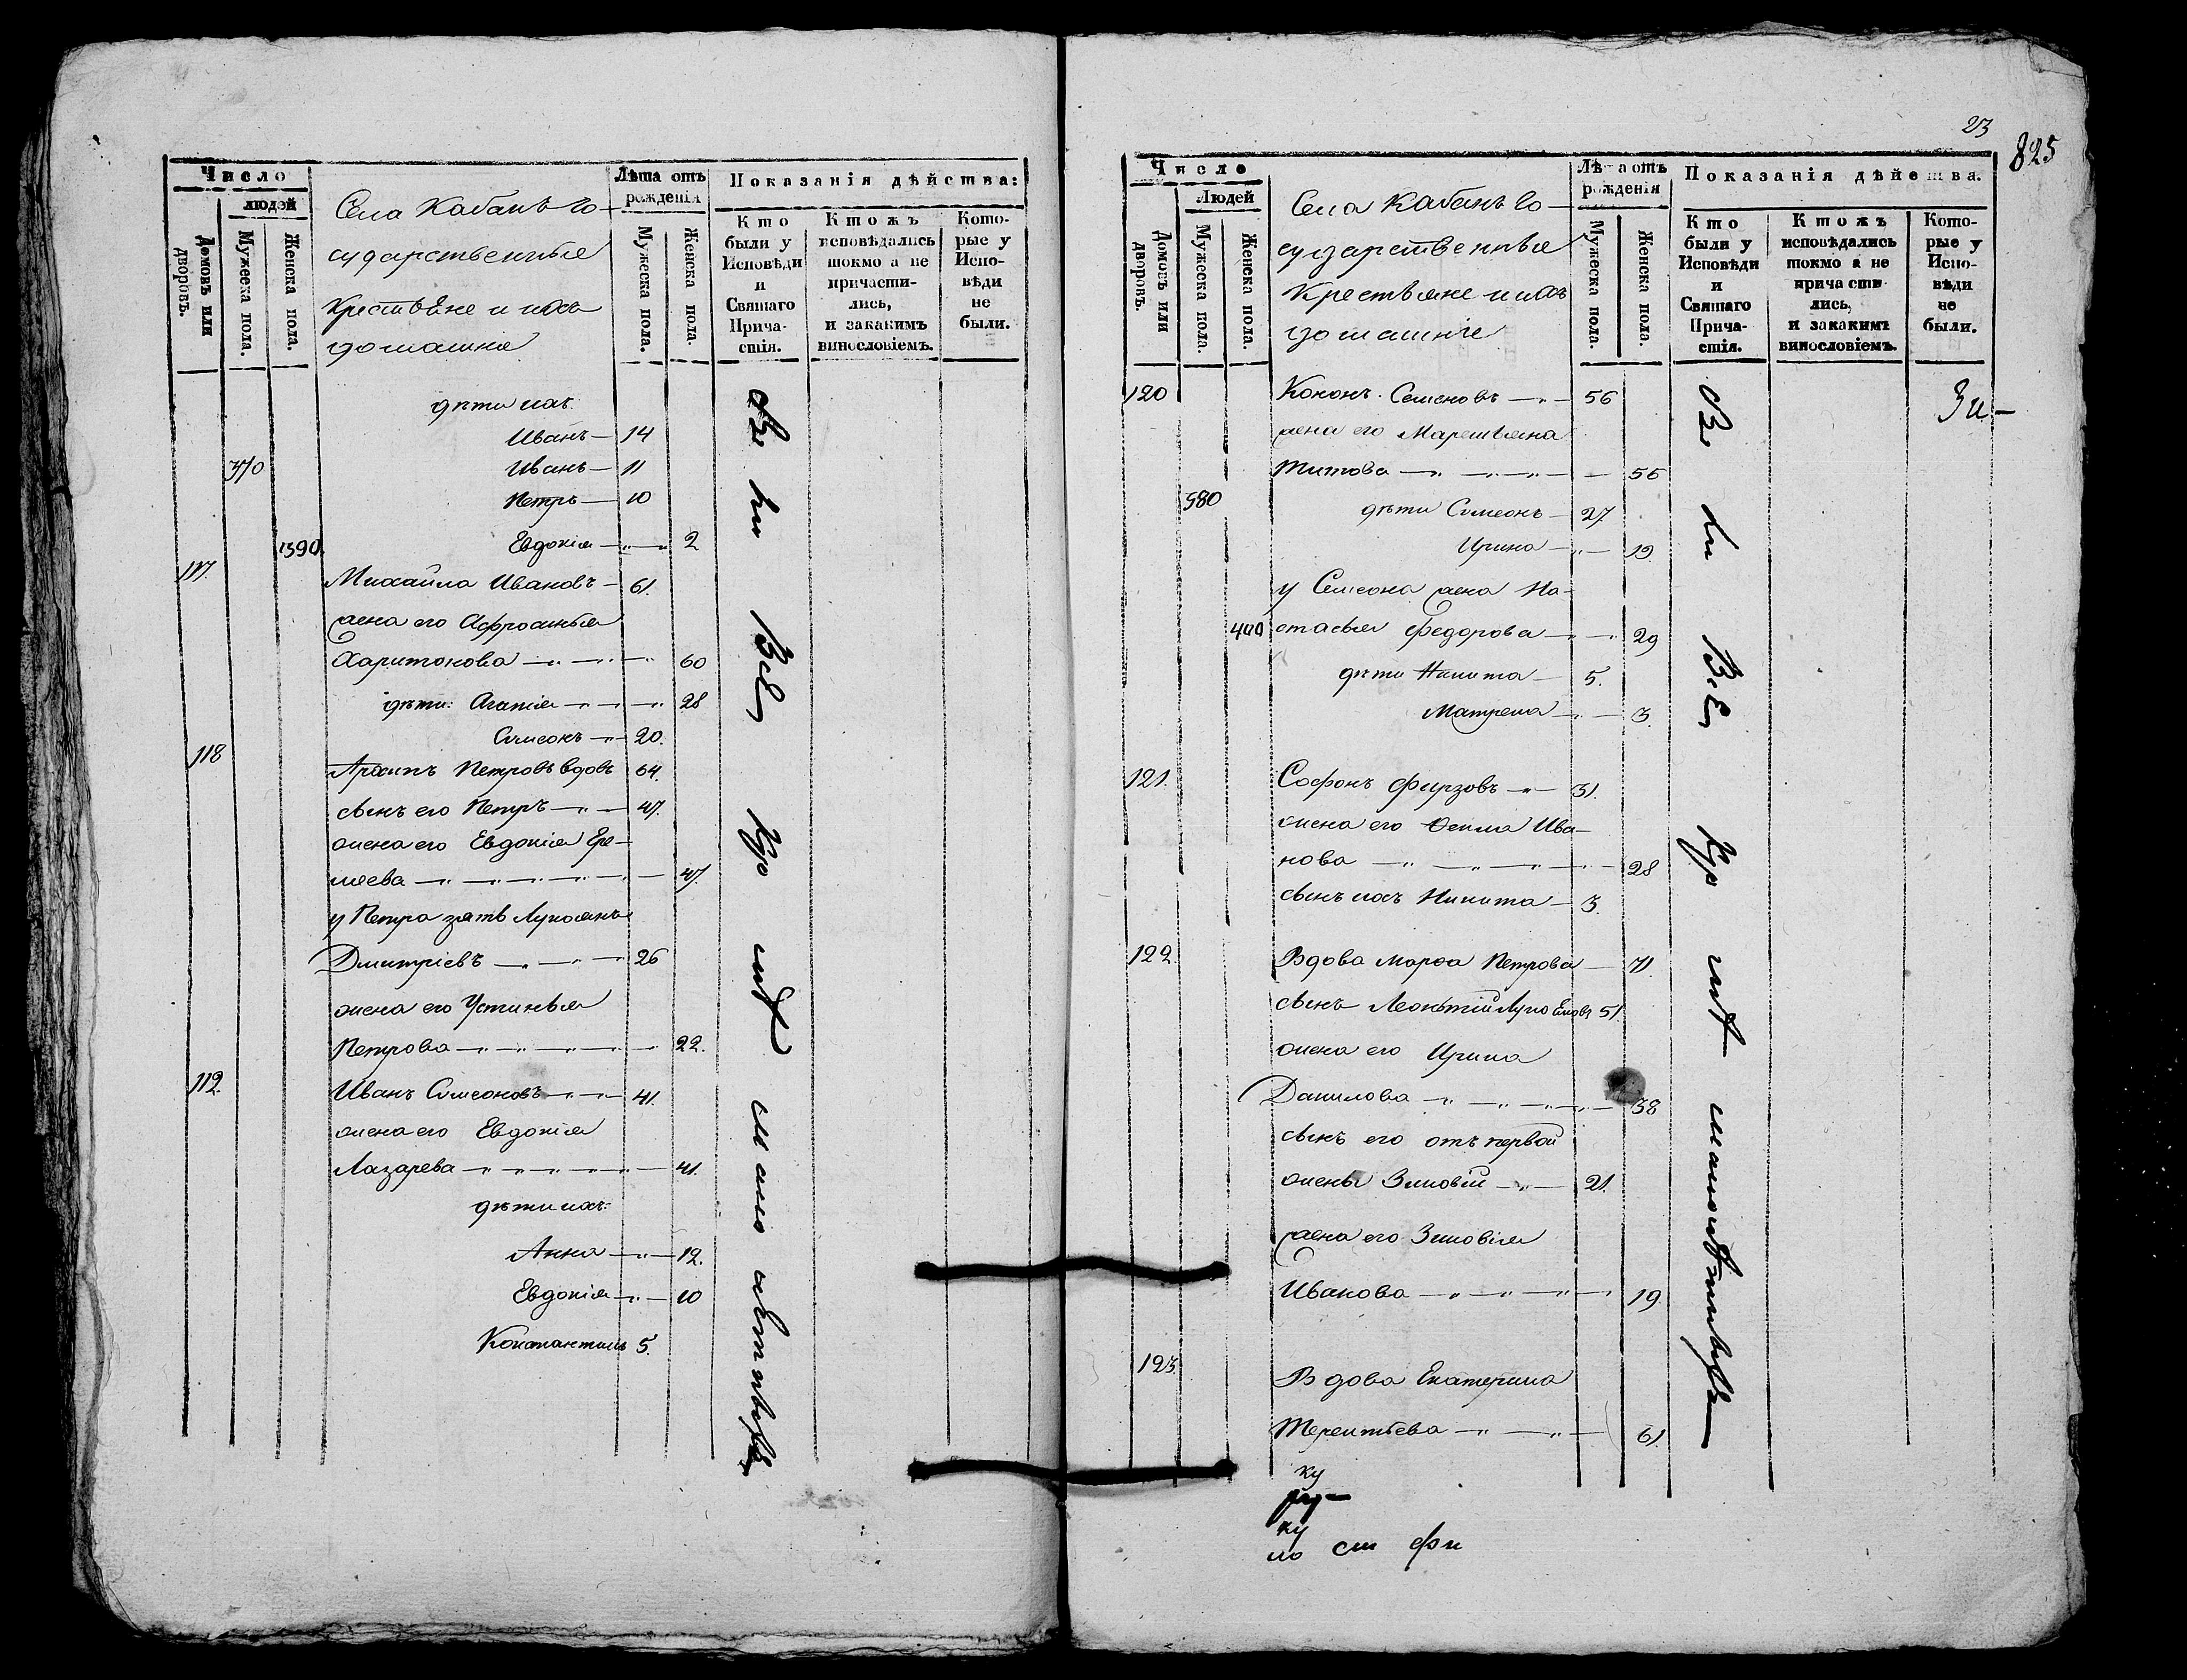 Число
людей
Домовъ или дворовъ.
Мужеска пола.
Женска пола.
Села Кабанъ го-
сударственныя
Крестьяне и ихъ
домашнія
Лѣта отъ рожденія
Мужеска пола.
Женска пола.
Показанія дѣйства:
Кто были у Исповѣди и Святаго Причастія.
Ктожъ исповѣдались токмо а не причастились, и закакимъ винословіемъ.
Которые у Исповѣди не были.
дѣти ихъ:
Иванъ — 14
370 Иванъ — 11
Петръ — 10
390. Евдокія — 2
117. Михайла Ивановъ — 61.
жена его Афросинья
Харитонова — 60
дѣти: Агапія — 28
Симеонъ — 20.
118 Архипъ Петровъ вдовъ 64.
сынъ его Петръ — 47.
жена его Евдокія Ере-
мѣева — 47.
у Петра зять Лукоянъ
Дмитріевъ — 26
жена его Устинья
Петрова — 22.
119. Иванъ Симеоновъ — 41.
жена его Евдокія
Лазарева — 41.
дѣти ихъ:
Анна — 12.
Евдокія — 10
Константинъ 5.
23
825
Число
Людей
Домовъ или дворовъ.
Мужеска пола.
Женска пола.
Села Кабанъ го-
сударственныя
Крестьяне и ихъ
домашніе
Лѣта отъ рожденія
Мужеска пола.
Женска пола.
Показанія дѣйства.
Кто были у Исповѣди и Святаго Причастія.
Ктожъ исповѣдались токмо а не причастились, и закакимъ винословіемъ.
Которые у Исповѣди не были.
120 Кононъ Семеновъ — 56
жена его Маремьяна
Титова — 56
380 дѣти Симеонъ — 27.
Ирина — 19.
у Симеона жена На-
400 стасья Федорова — 29
дѣти Никита — 5.
Матрена — 3.
121. Софонъ Фирзовъ — 31.
жена его Фекла Ива-
нова — 28
сынъ ихъ Никита — 3.
122. Вдова Марѳа Петрова — 71.
сынъ Леонтій 51.
жена его Ирина
Данилова — 38
сынъ его отъ первой
жены Зиновій — 21.
жена его Зиновія
Иванова — 19.
123. Вдова Екатерина
Терентьева — 61.